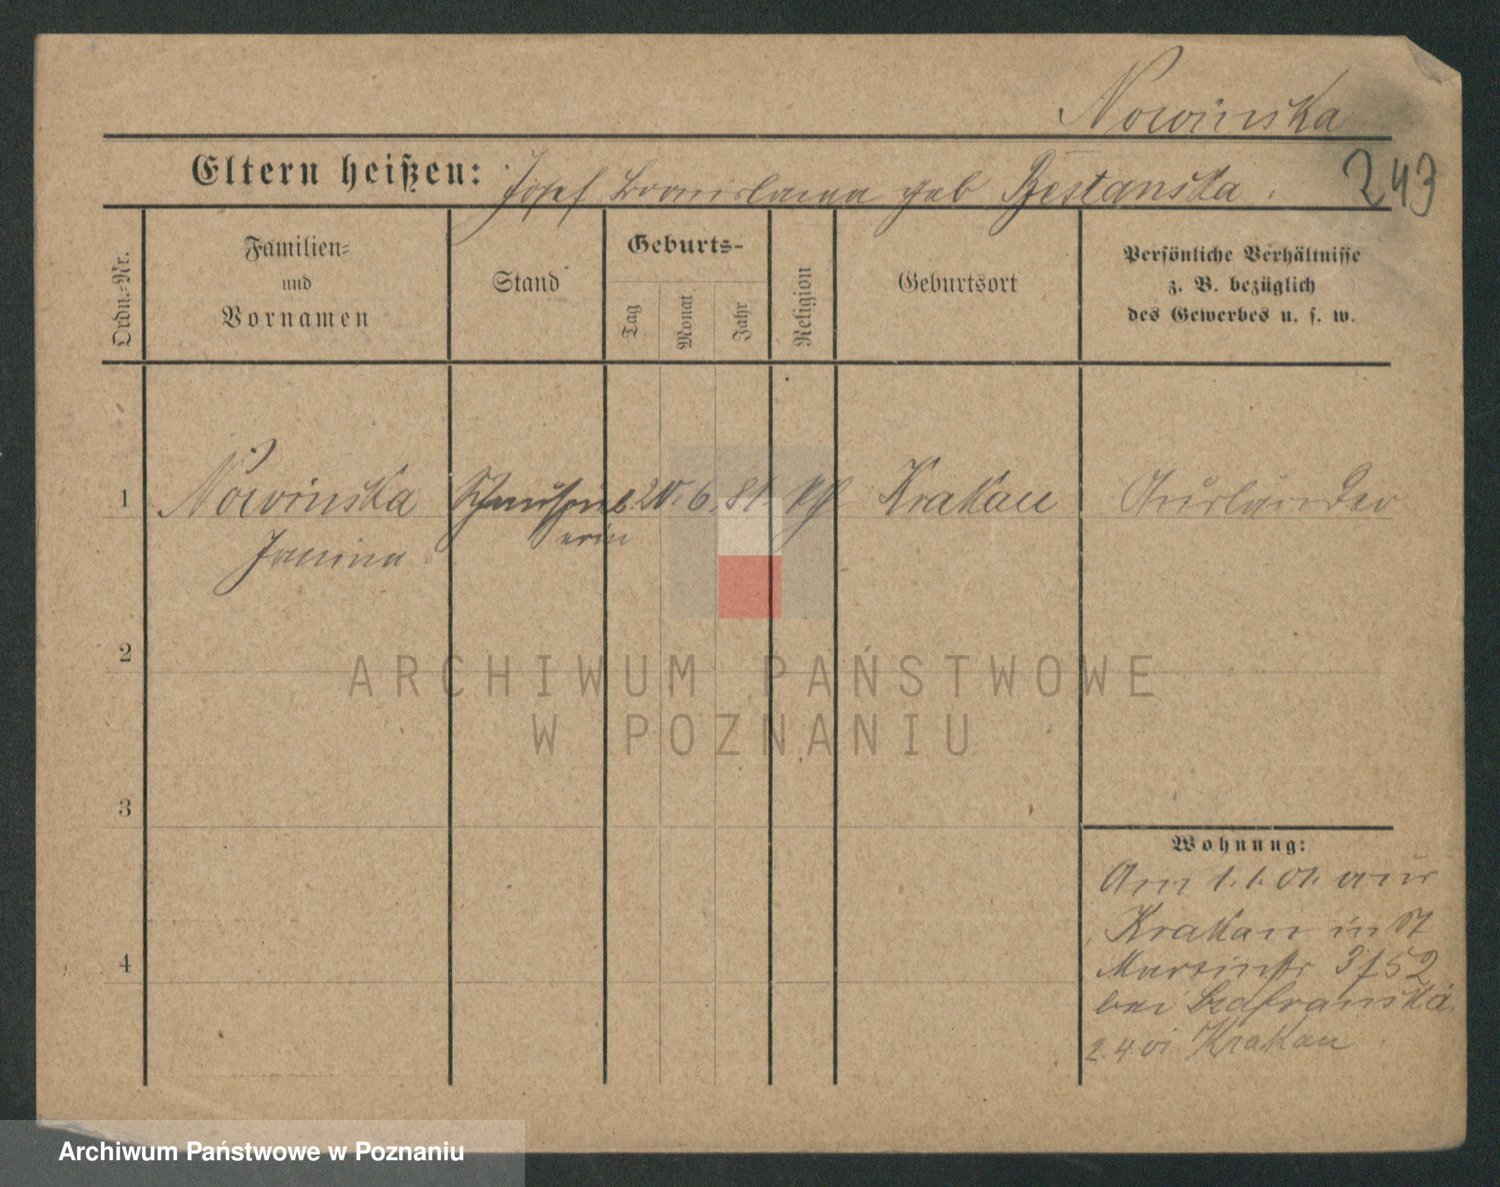 Nowinska
Eltern heißen: Josef Bronislawa geb 243
Ordn.-Nr.
Familien-
und
Vornamen
Stand
Geburts-
Tag
Monat
Jahr
Religion
Geburtsort
Persönliche Verhältnisse
z. B. bezüglich
des Gewerbes u. s. w.
1 Nowinska Schauspiel 20. 6. 81. Krakau Ausländer
Janina erin
2
ARCHIWUM PAŃSTWOWE
W POZNANIU
3
Wohnung:
Am 1.1.01. aus
Krakau in St
Martinstr 3/52
bei Szafranska
4
2.4 01 Krakau
Archiwum Państwowe w Poznaniu